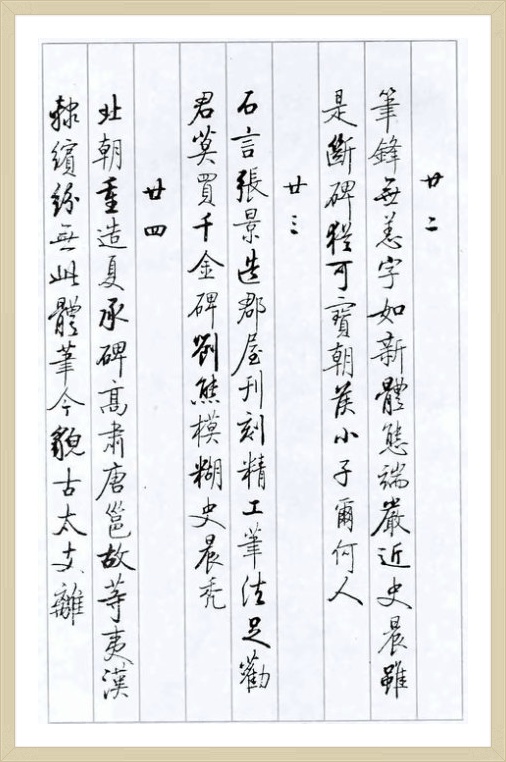 廿二
筆鋒無恙字如新體態端嚴近史晨雖
是斷碑猶可寶朝侯小子爾何人
廿三
石言張景造郡屋刊刻精工筆法足勸
君莫買千金碑劉熊模糊史晨禿
廿四
北朝重造夏承碑高肅唐邕故等夷漢
隸繽紛無此體筆今貌古太支離